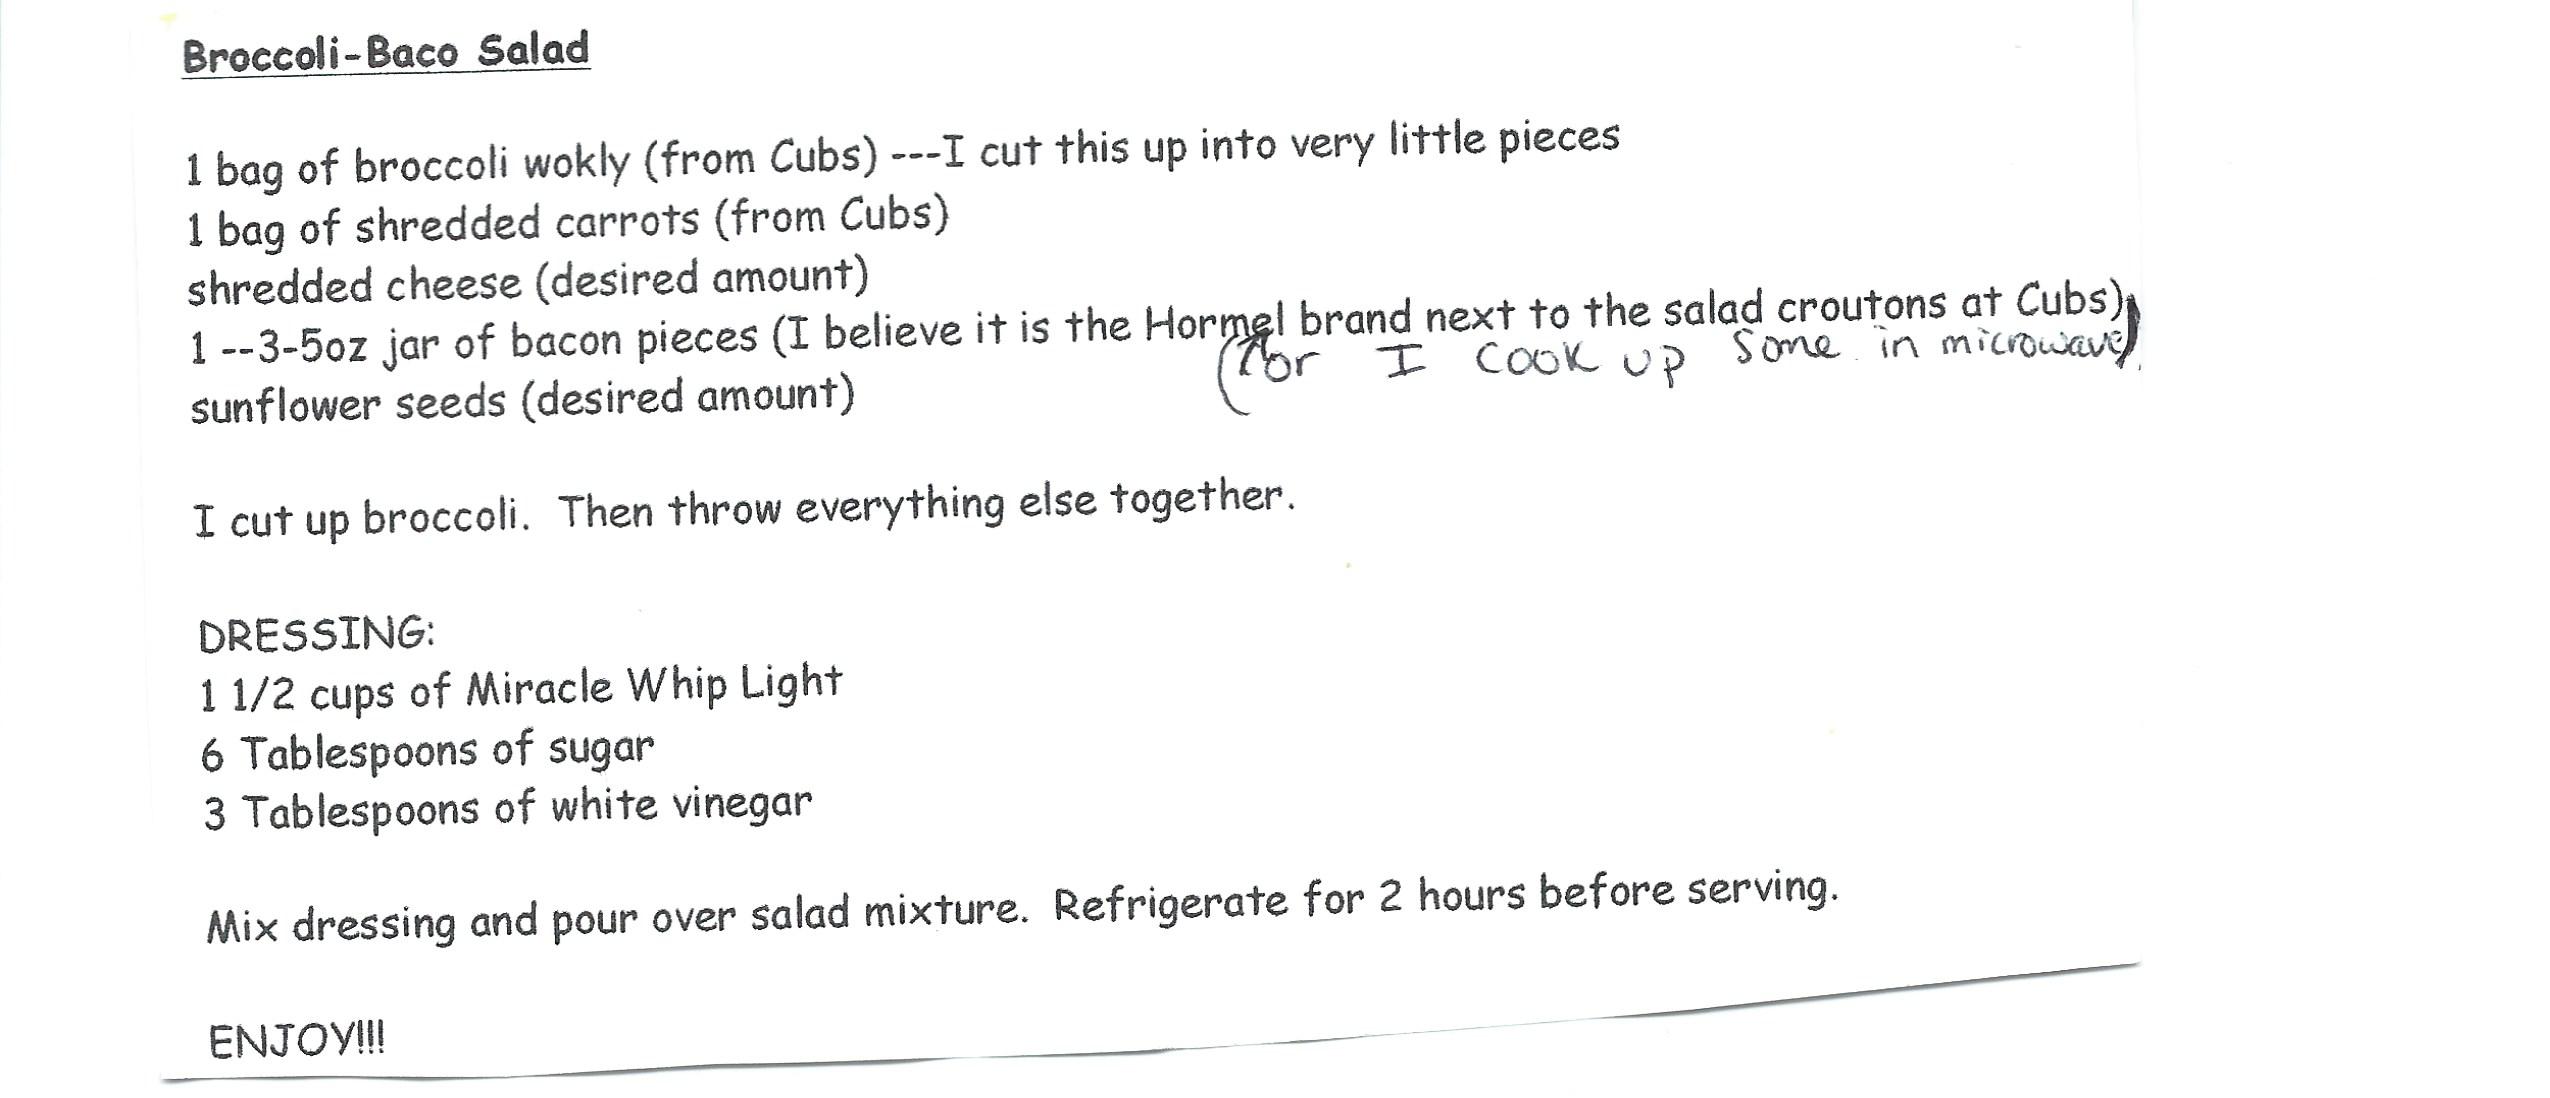 Broccoli-Baco Salad
1 bag of broccoli wokly (from Cubs) ---I cut this up into very little pieces
1 bag of shredded carrots (from Cubs)
shredded cheese (desired amount)
1 --3-5oz jar of bacon pieces (I believe it is the Hormel brand next to the salad croutons at Cubs)
(or I cook up some in microwave)
sunflower seeds (desired amount)
I cut up broccoli. Then throw everything else together.
DRESSING:
1 1/2 cups of Miracle Whip Light
6 Tablespoons of sugar
3 Tablespoons of white vinegar
Mix dressing and pour over salad mixture. Refrigerate for 2 hours before serving.
ENJOY!!!